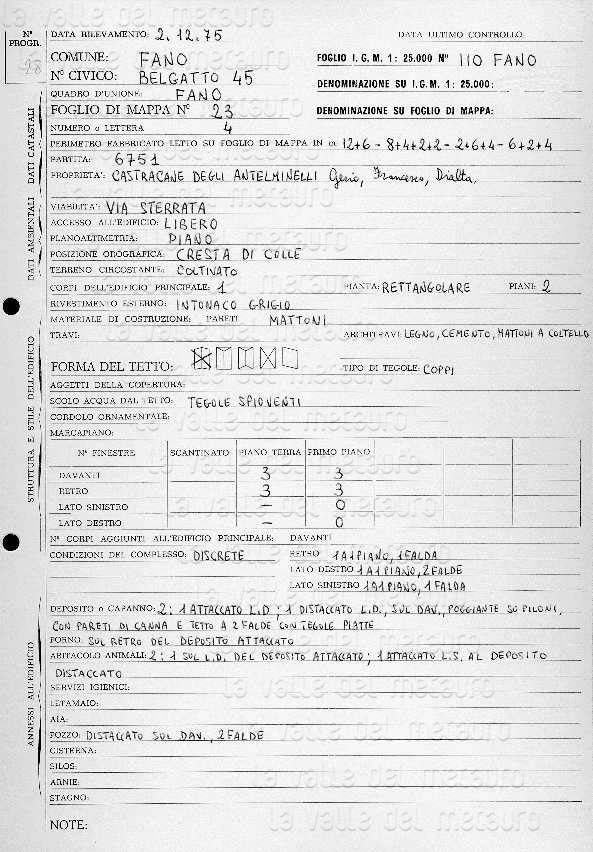 N° PROGR.
DATA RILEVAMENTO: 2.12.75 DATA ULTIMO CONTROLLO
COMUNE: FANO FOGLIO I.G.M. 1: 25.000 N° 110 FANO
N° CIVICO: BELGATTO 45 DENOMINAZIONE SU I.G.M. 1: 25.000:
QUADRO D'UNIONE: FANO
FOGLIO DI MAPPA N° 23 DENOMINAZIONE SU FOGLIO DI MAPPA:
NUMERO o LETTERA 4
PERIMETRO FABBRICATO LETTO SU FOGLIO DI MAPPA IN 12+6 - 8+4+2+2 - 2+6+4 - 6+2+4
PARTITA: 6751
PROPRIETA': CASTRACANE DEGLI ANTELMINELLI Francesco,
VIABILITA': VIA STERRATA
ACCESSO ALL'EDIFICIO: LIBERO
PLANOALTIMETRIA: PIANO
POSIZIONE OROGRAFICA: CRESTA DI COLLE
TERRENO CIRCOSTANTE: COLTIVATO
CORPI DELL'EDIFICIO PRINCIPALE: 1 PIANTA: RETTANGOLARE PIANI: 2
RIVESTIMENTO ESTERNO: INTONACO GRIGIO
MATERIALE DI COSTRUZIONE: PARETI MATTONI
TRAVI: ARCHITRAVI: LEGNO, CEMENTO, MATTONI A COLTELLO
FORMA DEL TETTO: TIPO DI TEGOLE: COPPI
AGGETTI DELLA COPERTURA:
SCOLO ACQUA DAL TETTO: TEGOLE SPIOVENTI
CORDOLO ORNAMENTALE:
MARCAPIANO:
N° FINESTRE SCANTINATO PIANO TERRA PRIMO PIANO
DAVANTI 3 3
RETRO 3 3
LATO SINISTRO – 0
LATO DESTRO – 0
N° CORPI AGGIUNTI ALL'EDIFICIO PRINCIPALE: DAVANTI
CONDIZIONI DEL COMPLESSO: DISCRETE RETRO 1 A 1 PIANO, 1 FALDA
LATO DESTRO 1 A 1 PIANO, 2 FALDE
LATO SINISTRO 1 A 1 PIANO, 1 FALDA
DEPOSITO o CAPANNO: 2: 1 ATTACCATO L.D; 1 DISTACCATO L.D., SUL DAV., POGGIANTE SU PILONI,
CON PARETI DI CANNA E TETTO A 2 FALDE CON TEGOLE PIATTE
FORNO: SUL RETRO DEL DEPOSITO ATTACCATO
ABITACOLO ANIMALI: 2: 1 SUL L.D. DEL DEPOSITO ATTACCATO; 1 ATTACCATO L.S. AL DEPOSITO
DISTACCATO
SERVIZI IGIENICI:
LETAMAIO:
AIA:
POZZO: DISTACCATO SUL DAV., 2 FALDE
CISTERNA:
SILOS:
ARNIE:
STAGNO:
NOTE:
DATI CATASTALI
DATI AMBIENTALI
STRUTTURA E STILE DELL'EDIFICIO
ANNESSI ALL'EDIFICIO
la valle del metauro